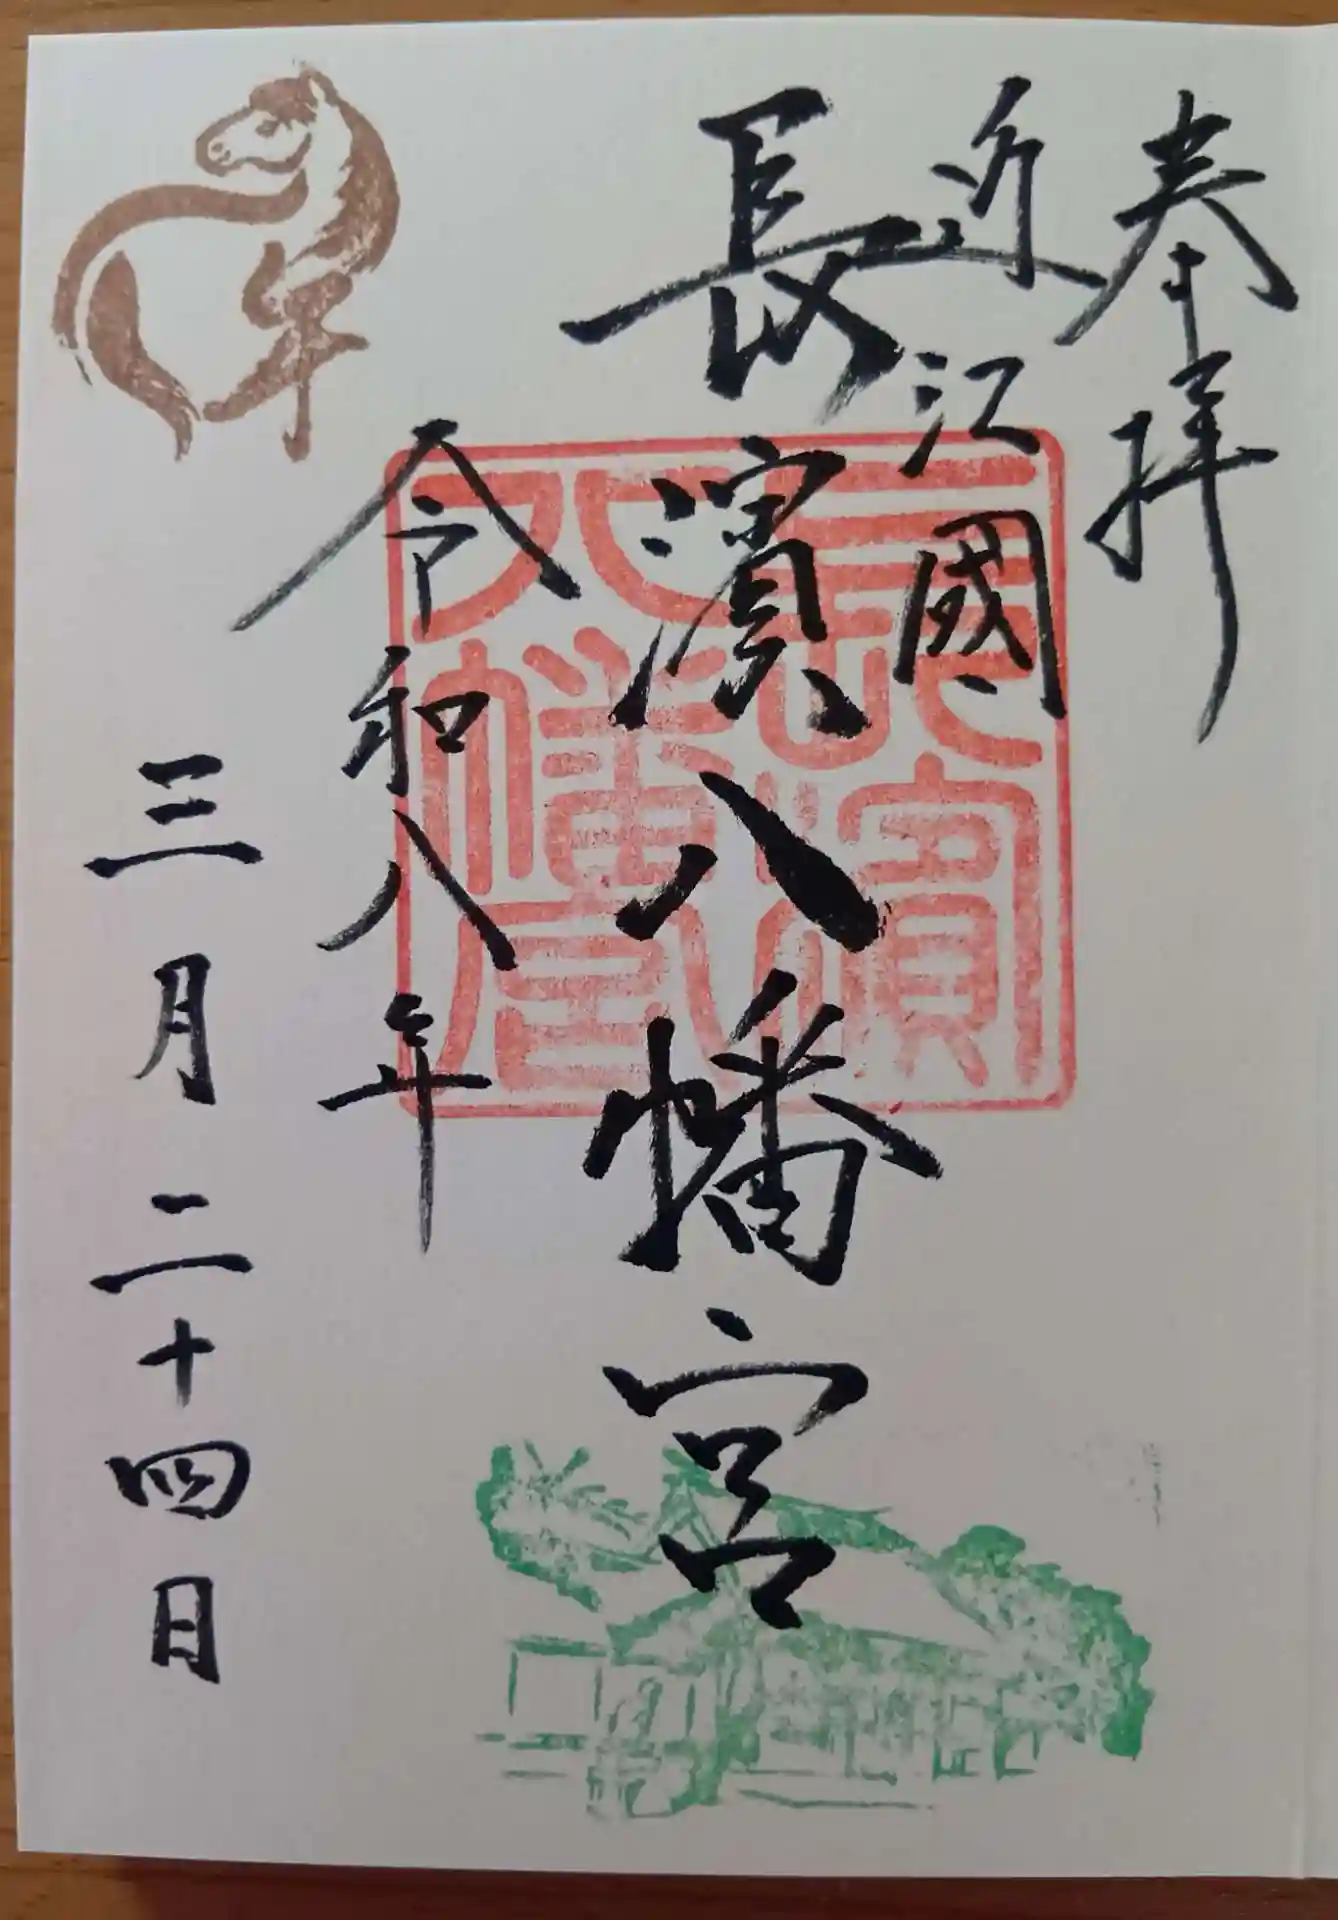 奉拝
近江國
長濱八幡宮
長濱
八幡宮
令和八年
三月二十四日
午